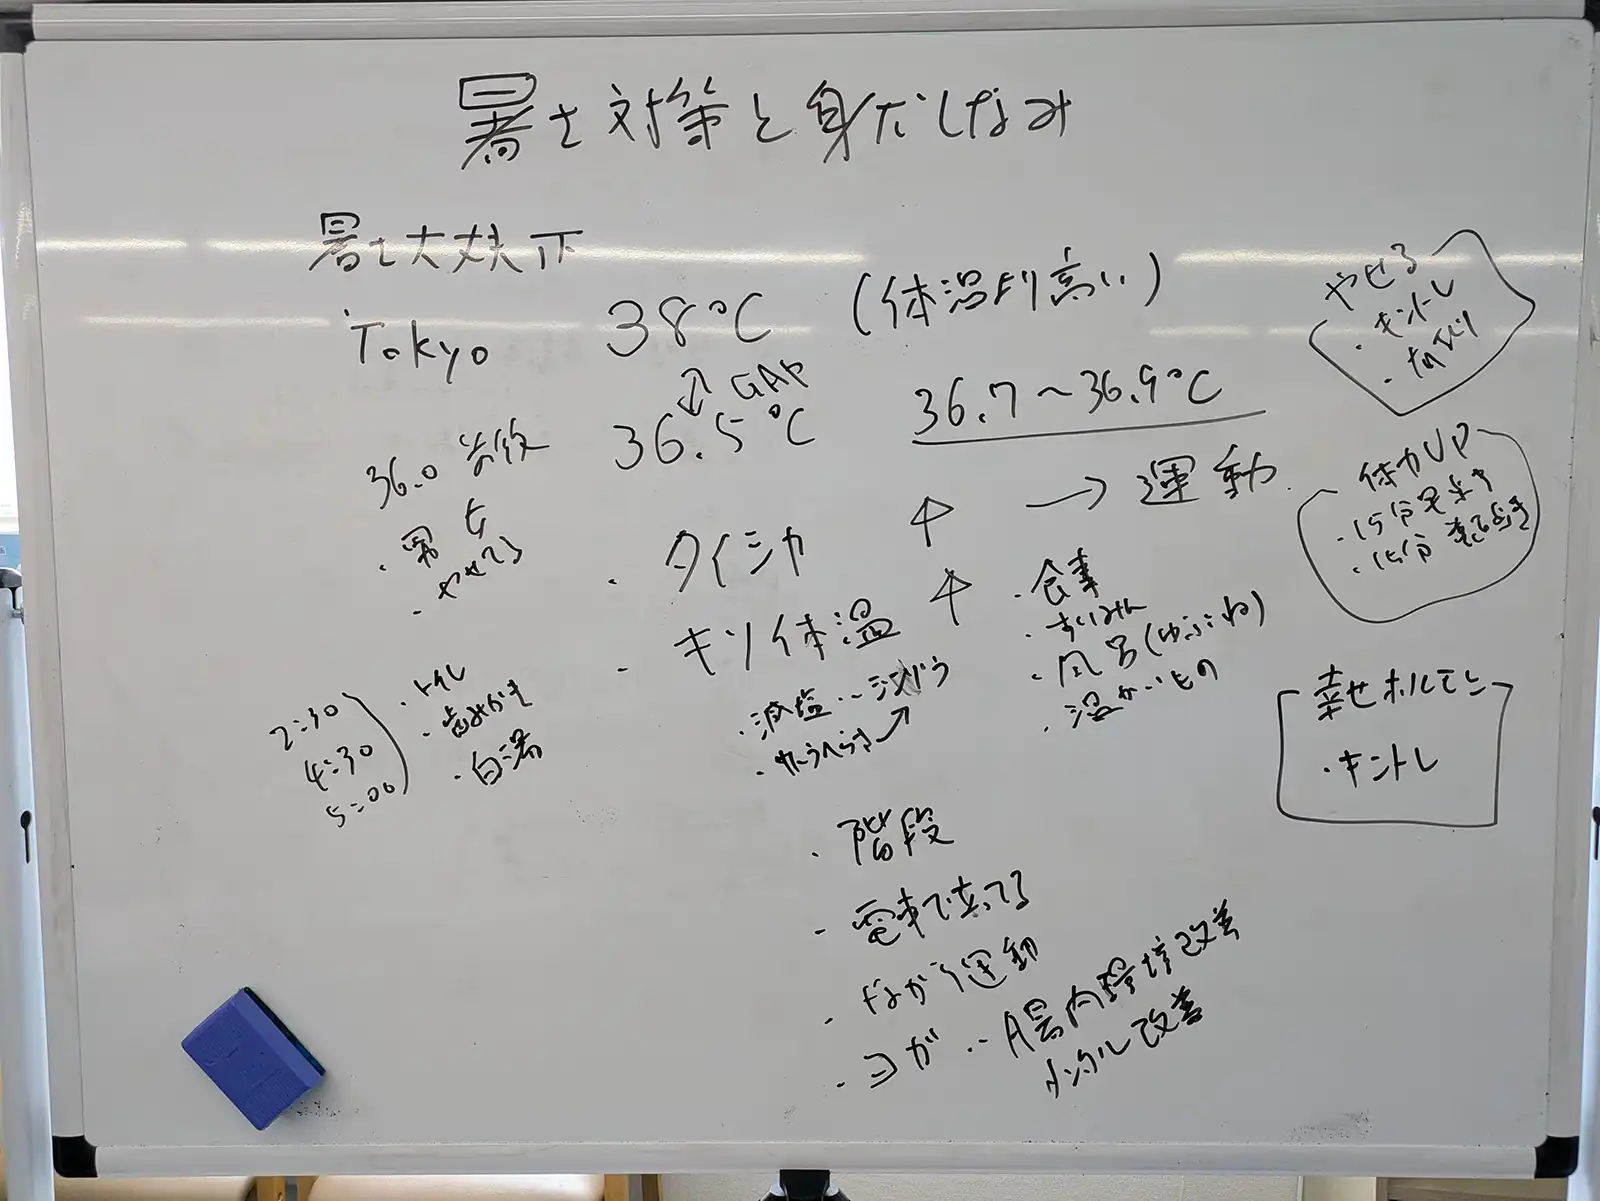 暑さ対策と身だしなみ
暑さ大丈夫
Tokyo 38℃ (体温より高い)
GAP
36.0 前後 36.5℃ 36.7～36.9℃
・タイシャ ↑ → 運動
・キソ体温 ↑
・やせてる
・食事
・すいみん
・風呂(ゆぶね)
・温かいもの
・減塩‥
2:30
4:30
5:00
・トイレ
・歯みがき
・白湯
・階段
・電車で立ってる
・ながら運動
・ヨガ‥腸内環境改善
メンタル改善
やせる
・キントレ
体力UP
・15分
・15分
幸せホルモン
・キントレ